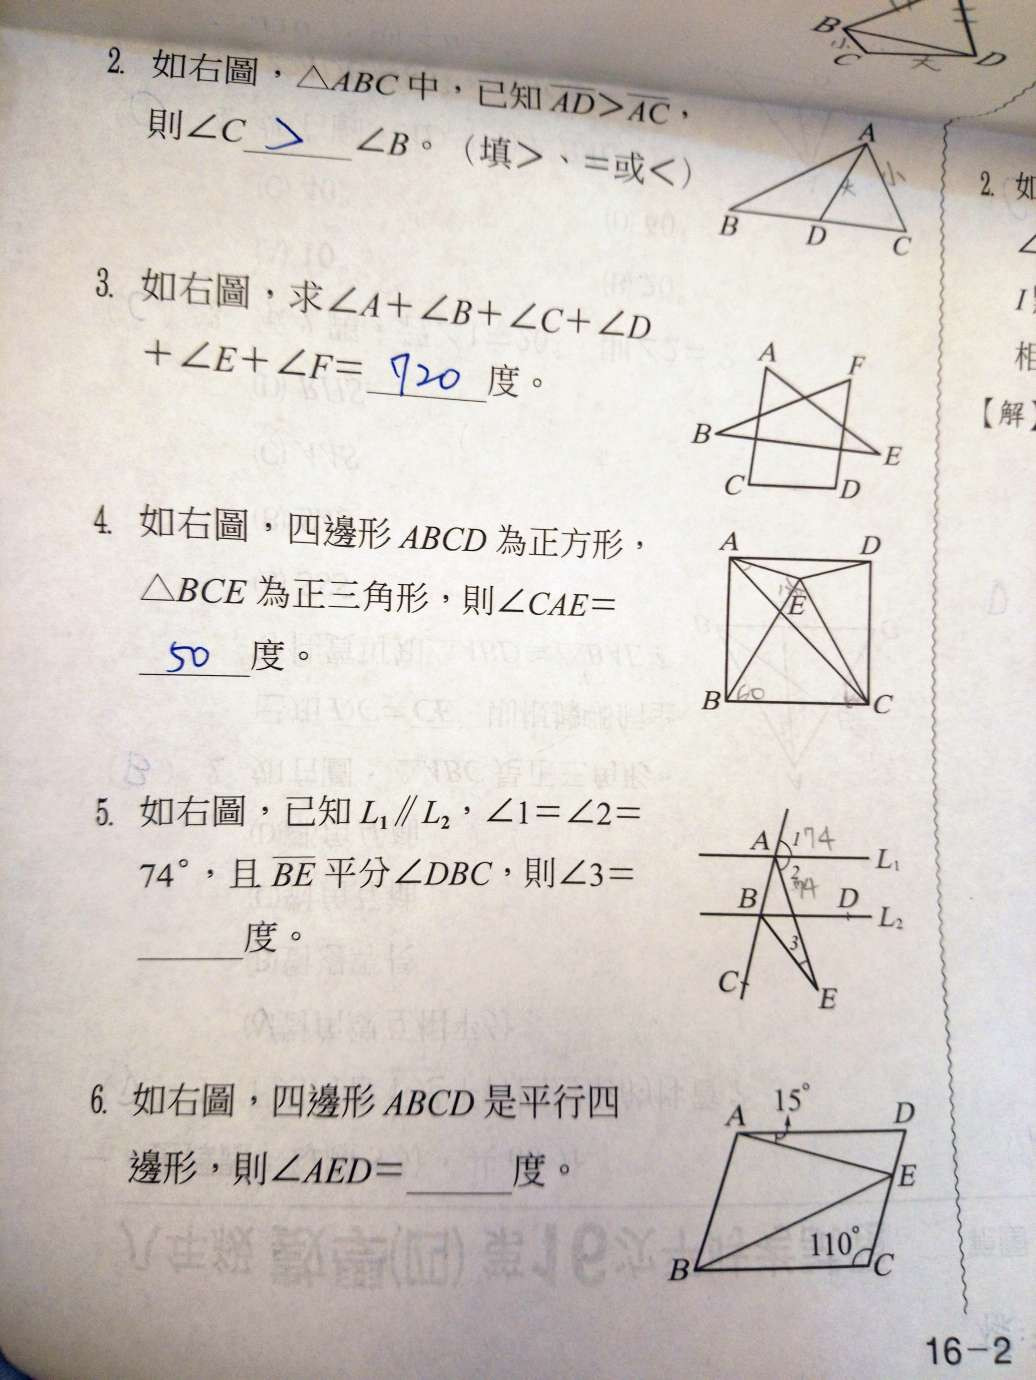 B
小
C
大
D
2. 如右圖，△ABC中，已知AD>AC，
則∠C > ∠B。（填>、=或<）
A
大
小
B
D
C
2. 如
∠
相
【解】
3. 如右圖，求∠A+∠B+∠C+∠D
+∠E+∠F= 720 度。
A
F
B
E
C
D
4. 如右圖，四邊形ABCD為正方形，
△BCE為正三角形，則∠CAE=
50 度。
A
D
E
B
60
C
5. 如右圖，已知L₁∥L₂，∠1=∠2=
74°，且BE平分∠DBC，則∠3=
度。
A
1
74
L₁
2
74
B
D
L₂
3
C
E
6. 如右圖，四邊形ABCD是平行四
邊形，則∠AED=______度。
15°
A
D
E
110°
B
C
16-2